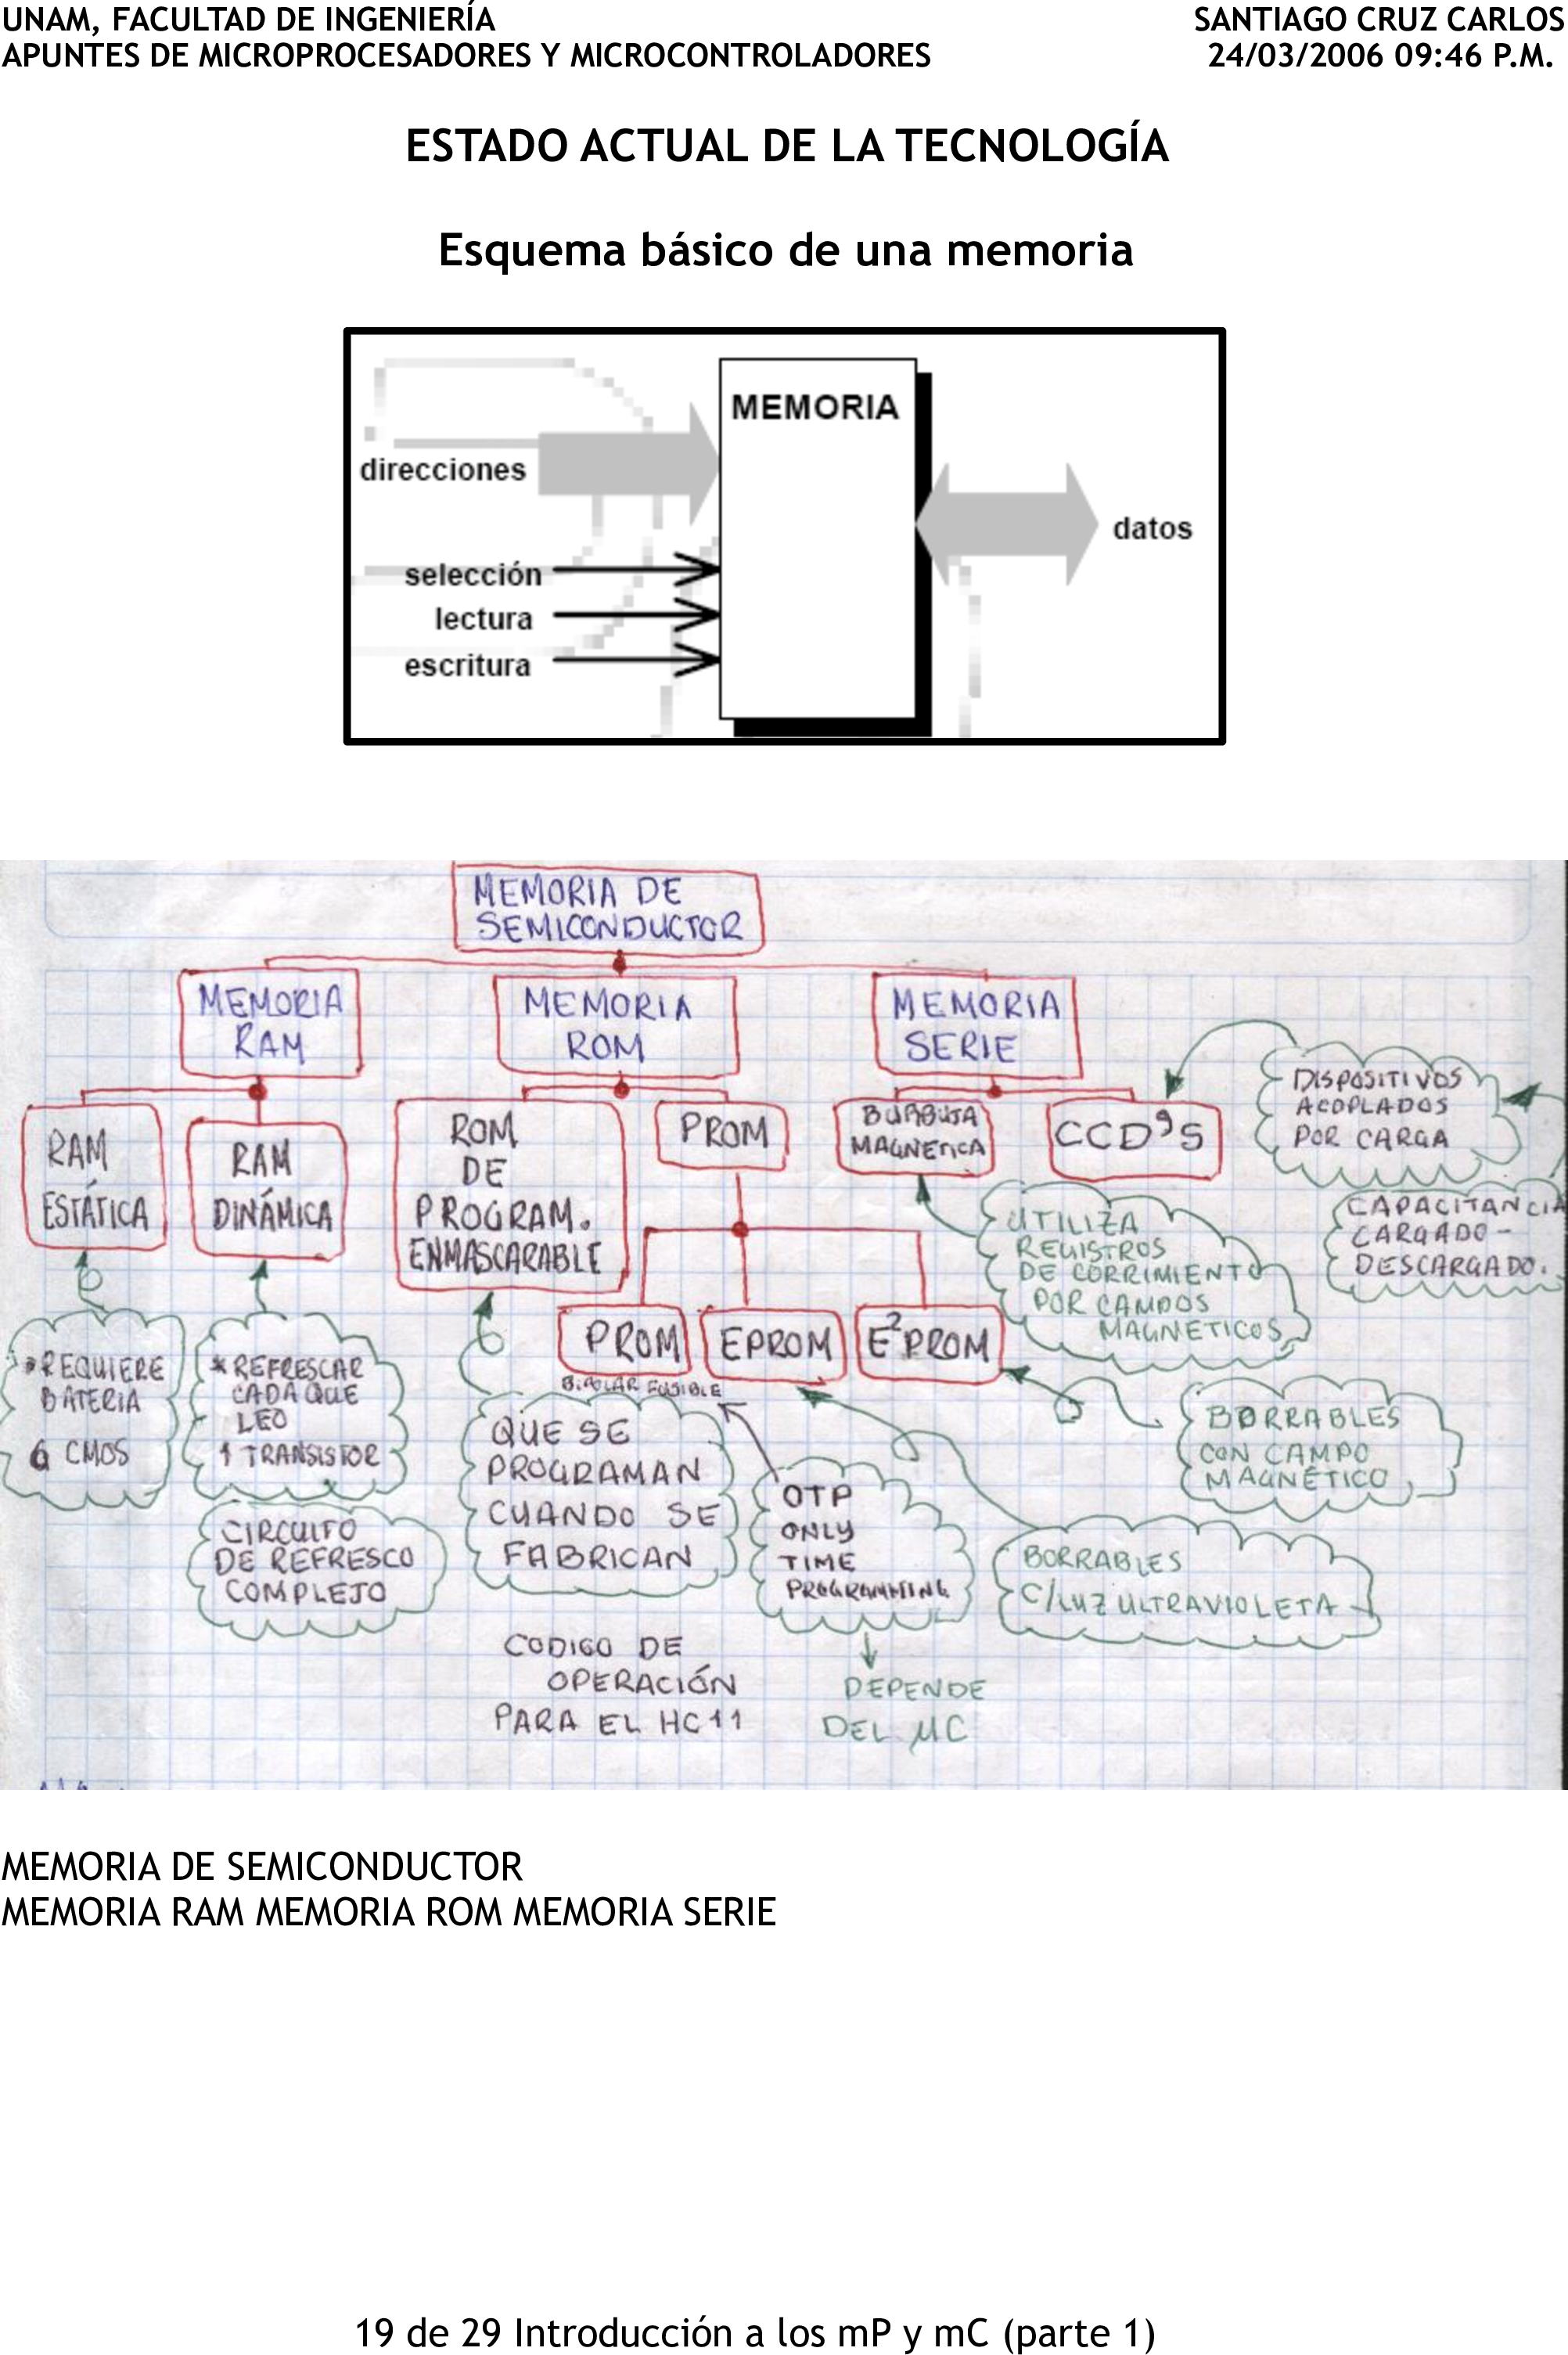 UNAM, FACULTAD DE INGENIERÍA
SANTIAGO CRUZ CARLOS
APUNTES DE MICROPROCESADORES Y MICROCONTROLADORES
24/03/2006 09:46 P.M.
ESTADO ACTUAL DE LA TECNOLOGÍA
Esquema básico de una memoria
MEMORIA
direcciones
datos
selección
lectura
escritura
MEMORIA DE
SEMICONDUCTOR
MEMORIA
RAM
MEMORIA
ROM
MEMORIA
SERIE
RAM
ESTÁTICA
RAM
DINÁMICA
ROM
DE
PROGRAM.
ENMASCARABLE
PROM
BURBUJA
MAGNETICA
CCD'S
DISPOSITIVOS
ACOPLADOS
POR CARGA
CAPACITANCIA
CARGADO-
DESCARGADO.
UTILIZA
REGISTROS
DE CORRIMIENTO
POR CAMPOS
MAGNETICOS
PROM
BIPOLAR FUSIBLE
EPROM
E²PROM
*REQUIERE
BATERIA
6 CMOS
*REFRESCAR
CADA QUE
LEO
1 TRANSISTOR
CIRCUITO
DE REFRESCO
COMPLEJO
QUE SE
PROGRAMAN
CUANDO SE
FABRICAN
OTP
ONLY
TIME
PROGRAMMING
BORRABLES
CON CAMPO
MAGNÉTICO
BORRABLES
C/LUZ ULTRAVIOLETA
CODIGO DE
OPERACIÓN
PARA EL HC11
DEPENDE
DEL µC
MEMORIA DE SEMICONDUCTOR
MEMORIA RAM MEMORIA ROM MEMORIA SERIE
19 de 29 Introducción a los mP y mC (parte 1)